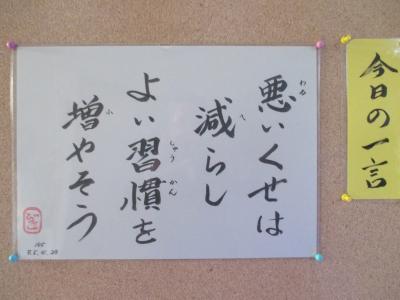 今日の一言
悪いくせは
減らし
よい習慣を
増やそう
わる
へ
しゅう
かん
ふ